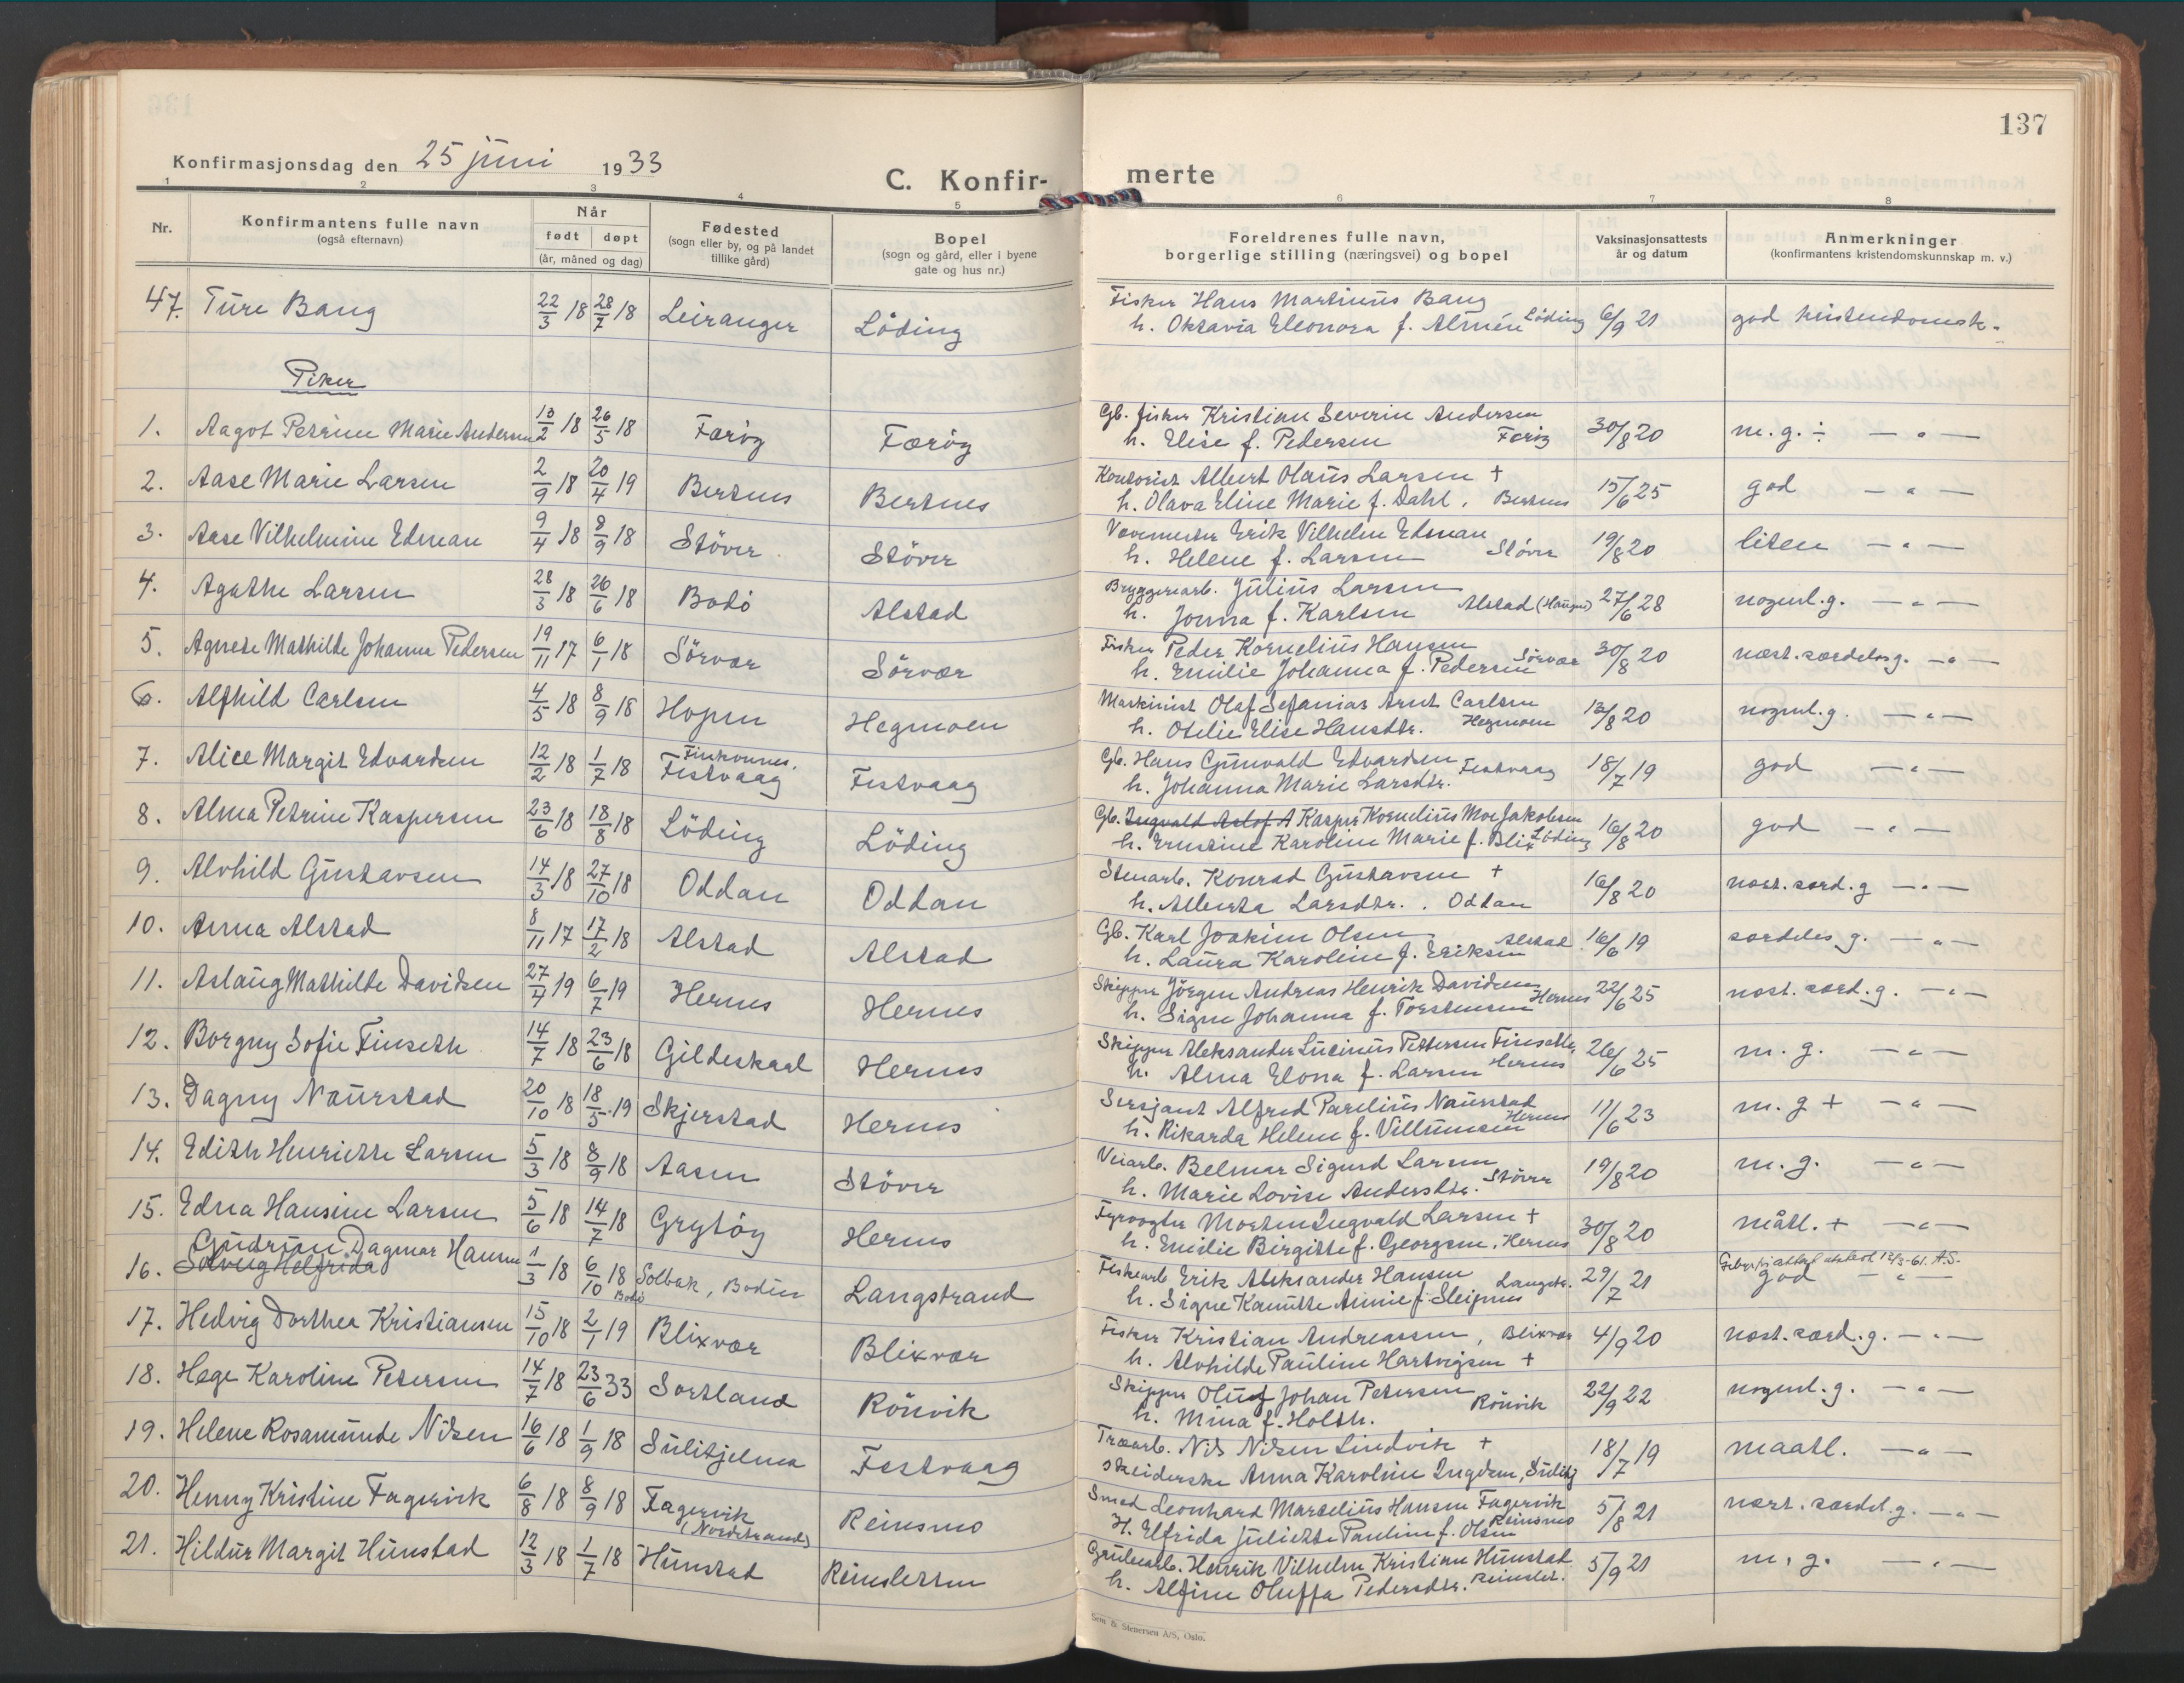 137
Konfirmasjonsdag den 25 juni 1933
C. Konfirmerte
1 2 3 4 5 6 7 8
Nr. Konfirmantens fulle navn (også efternavn) Når født døpt (år, måned og dag) Fødested (sogn eller by, og på landet tillike gård) Bopel (sogn og gård, eller i byene gate og hus nr.) Foreldrenes fulle navn, borgerlige stilling (næringsvei) og bopel Vaksinasjonsattests år og datum Anmerkninger (konfirmantens kristendomskunnskap m. v.)
47. Ture Bang 22/3 18 28/7 18 Leiranger Löding Fisker Hans Martinus Bang
h. Oktavia Eleonora f. Almén Löding 6/9 21 god kristendomsk.
Piker
1. Aagot Petrine Marie Andersen 13/2 18 26/5 18 Færöy Færöy Gb. fisker Kristian Severin Andersen
h. Elise f. Pedersen Færöy 30/8 20 m. g. ÷ — " —
2. Aase Marie Larsen 2/9 18 20/4 19 Bertnes Bertnes Kontorist Albert Olaus Larsen +
h. Olava Eline Marie f. Dahl, Bertnes 15/6 25 god — " —
3. Aase Vilhelmine Edman 9/4 18 8/9 18 Stöver Stöver Vovemester Erik Vilhelm Edman
h. Helene f. Larsen Stöver 19/8 20 liten — " —
4. Agathe Larsen 28/3 18 26/6 18 Bodö Alstad Bryggeriarb. Julius Larsen
h. Jonna f. Karlsen Alstad (Haugen) 27/6 28 nogenl. g. — " —
5. Agnete Mathilde Johanna Pedersen 19/11 17 6/1 18 Sörvær Sörvær Fisker Peder Kornelius Hansen
h. Emilie Johanna f. Pedersen Sörvær 30/8 20 næst. særdeles g. — " —
6. Alfhild Carlsen 4/5 18 8/9 18 Hopen Hegmoen Maskinist Olaf Sefanias Arnt Carlsen
h. Otelie Elise Hansdtr. Hegmoen 13/8 20 nogenl. g. — " —
7. Alice Margit Edvardsen 12/2 18 1/7 18 Finkonnes, Festvaag Festvaag Gb. Hans Gunvald Edvardsen
h. Johanna Marie Larsdtr. Festvaag 18/7 19 god — " —
8. Alma Petrine Kaspersen 23/6 18 18/8 18 Löding Löding Gb. Ingvald Aslof A Kasper Kornelius Moe Jakobsen
h. Ernstine Karoline Marie f. Blix Löding 16/8 20 god — " —
9. Alvhild Gustavsen 14/3 18 27/10 18 Oddan Oddan Stenarb. Konrad Gustavsen +
h. Alberta Larsdtr. . Oddan 16/8 20 næst. særd. g — " —
10. Anna Alstad 8/11 17 17/2 18 Alstad Alstad Gb. Karl Joakim Olsen
h. Laura Karoline f. Eriksen Alstad 16/6 19 særdeles g. — " —
11. Aslaug Mathilde Davidsen 27/4 19 6/7 19 Hernes Hernes Skipper Jörgen Andreas Henrik Davidsen
h. Signe Johanna f. Torstensen Hernes 22/6 25 næst. særd. g. — " —
12. Borgny Sofie Finseth 14/7 18 23/6 18 Gildeskaal Hernes Skipper Aleksander Lucinus Pettersen Finseth,
h. Alma Elona f. Larsen Hernes 26/6 25 m. g. — " —
13. Dagny Naurstad 20/10 18 18/5 19 Skjerstad Hernes Sersjant Alfred Parelius Naurstad
h. Rikarda Helene f. Villumsen Hernes 11/6 23 m. g + — " —
14. Edith Henriette Larsen 5/3 18 8/9 18 Aasen Stöver Veiarb. Belmar Sigurd Larsen
h. Marie Lovise Andersdtr. Stöver 19/8 20 m. g. — " —
15. Edna Hansine Larsen 5/6 18 14/7 18 Grytöy Hernes Fyrvogter Morten Ingvald Larsen +
h. Emilie Birgitte f. Georgsen, Hernes 30/8 20 måtl. + — " —
16. Gudrun Dagmar Hansen
Solveig Helfrida 1/3 18 6/10 18 Bodö Solbak, Bodin Langstrand Fiskearb Erik Aleksander Hansen
h. Signe Kamitte Annie f. Sleipnes Langstr. 29/7 21 god — " —
17. Hedvig Dorthea Kristiansen 15/10 18 2/1 19 Blixvær Blixvær Fisker Kristian Andreassen, Blixvær
h. Alvhilde Pauline Hartvigsen + 4/9 20 næst. særd. g. — " —
18. Hege Karoline Petersen 14/7 18 23/6 33 Sortland Rönvik Skipper Oluf Johan Petersen
h. Mina f. Holth. Rönvik 22/9 22 nogenl. g. — " —
19. Helene Rosamunde Nilsen 16/6 18 1/9 18 Sulitjelma Festvaag Træarb. Nils Nilsen Lindvik +
skeiderske Anna Karoline Ingdsen, Sulitj 18/7 19 maatl. — " —
20. Henny Kristine Fagervik 6/8 18 8/9 18 Fagervik (Nordstrand) Reinsmo Smed Leonhard Marselius Hansen Fagervik
H. Elfrida Juliette Pauline f. Olsen Reinsmo 5/8 21 næst. særdel. g. — " —
21. Hildur Margit Hunstad 12/3 18 1/7 18 Hunstad Reinsletten Grubearb. Henrik Vilhelm Kristian Hunstad
h. Alfine Oluffa Pedersdtr. Reinslet. 5/9 21 m. g. — " —
Sem & Stenersen A/S, Oslo.